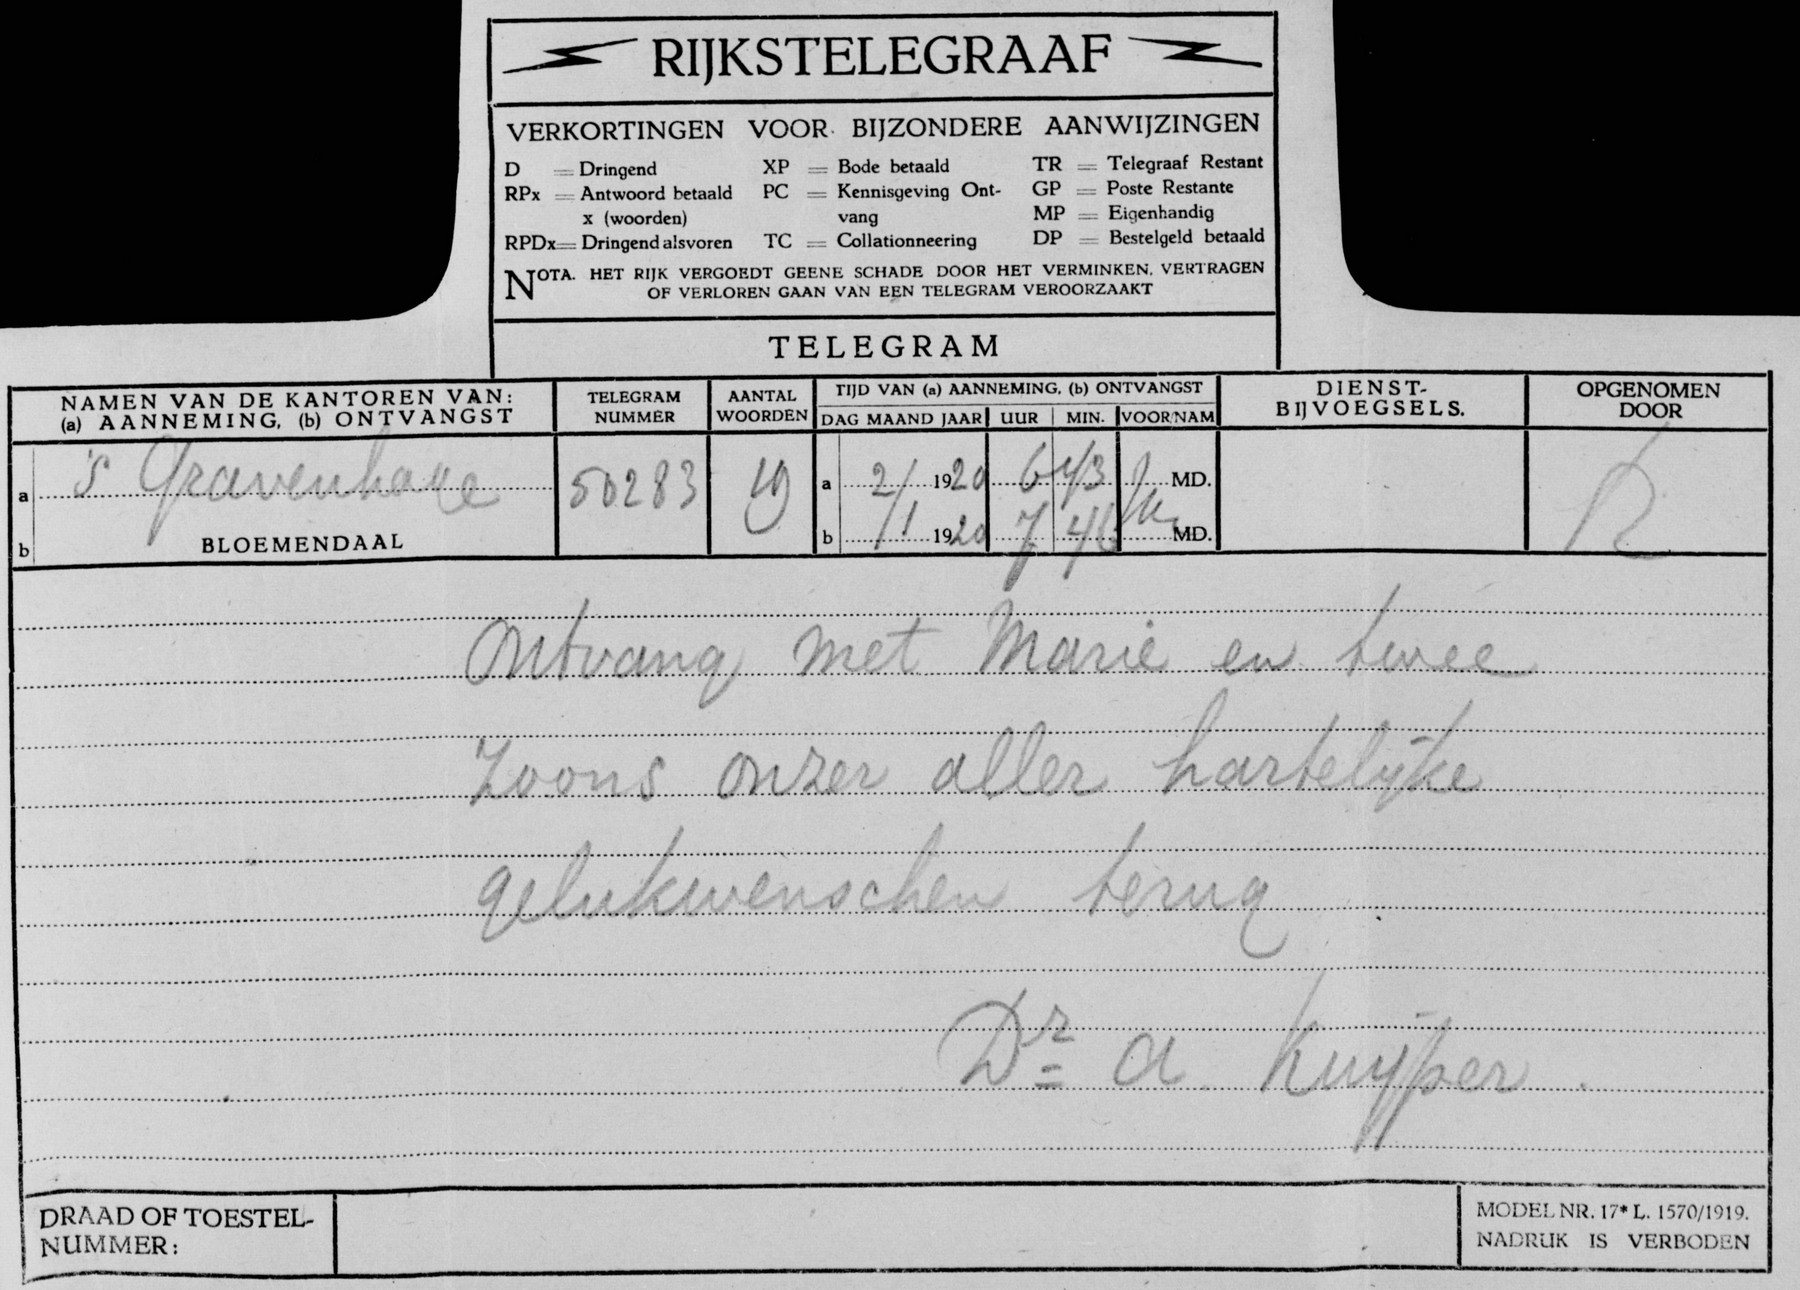 RIJKSTELEGRAAF
VERKORTINGEN VOOR BIJZONDERE AANWIJZINGEN
D = Dringend XP = Bode betaald TR = Telegraaf Restant
RPx = Antwoord betaald PC = Kennisgeving Ont- GP = Poste Restante
x (woorden) vang MP = Eigenhandig
RPDx = Dringend alsvoren TC = Collationneering DP = Bestelgeld betaald
NOTA. HET RIJK VERGOEDT GEENE SCHADE DOOR HET VERMINKEN, VERTRAGEN
OF VERLOREN GAAN VAN EEN TELEGRAM VEROORZAAKT
TELEGRAM
NAMEN VAN DE KANTOREN VAN:
(a) AANNEMING, (b) ONTVANGST
TELEGRAM
NUMMER
AANTAL
WOORDEN
TIJD VAN (a) AANNEMING, (b) ONTVANGST
DAG MAAND JAAR UUR MIN. VOOR NAM
DIENST-
BIJVOEGSELS.
OPGENOMEN
DOOR
a 's Gravenhage 50283 19 a 2/ 1920 6 43 MD.
b BLOEMENDAAL b /1 1920 7 46 MD.
R
Ontvang met Marie en twee
Zoons onzer aller hartelijke
gelukwenschen terug
Dr A Kuijper
DRAAD OF TOESTEL-
NUMMER:
MODEL NR. 17* L. 1570/1919.
NADRUK IS VERBODEN